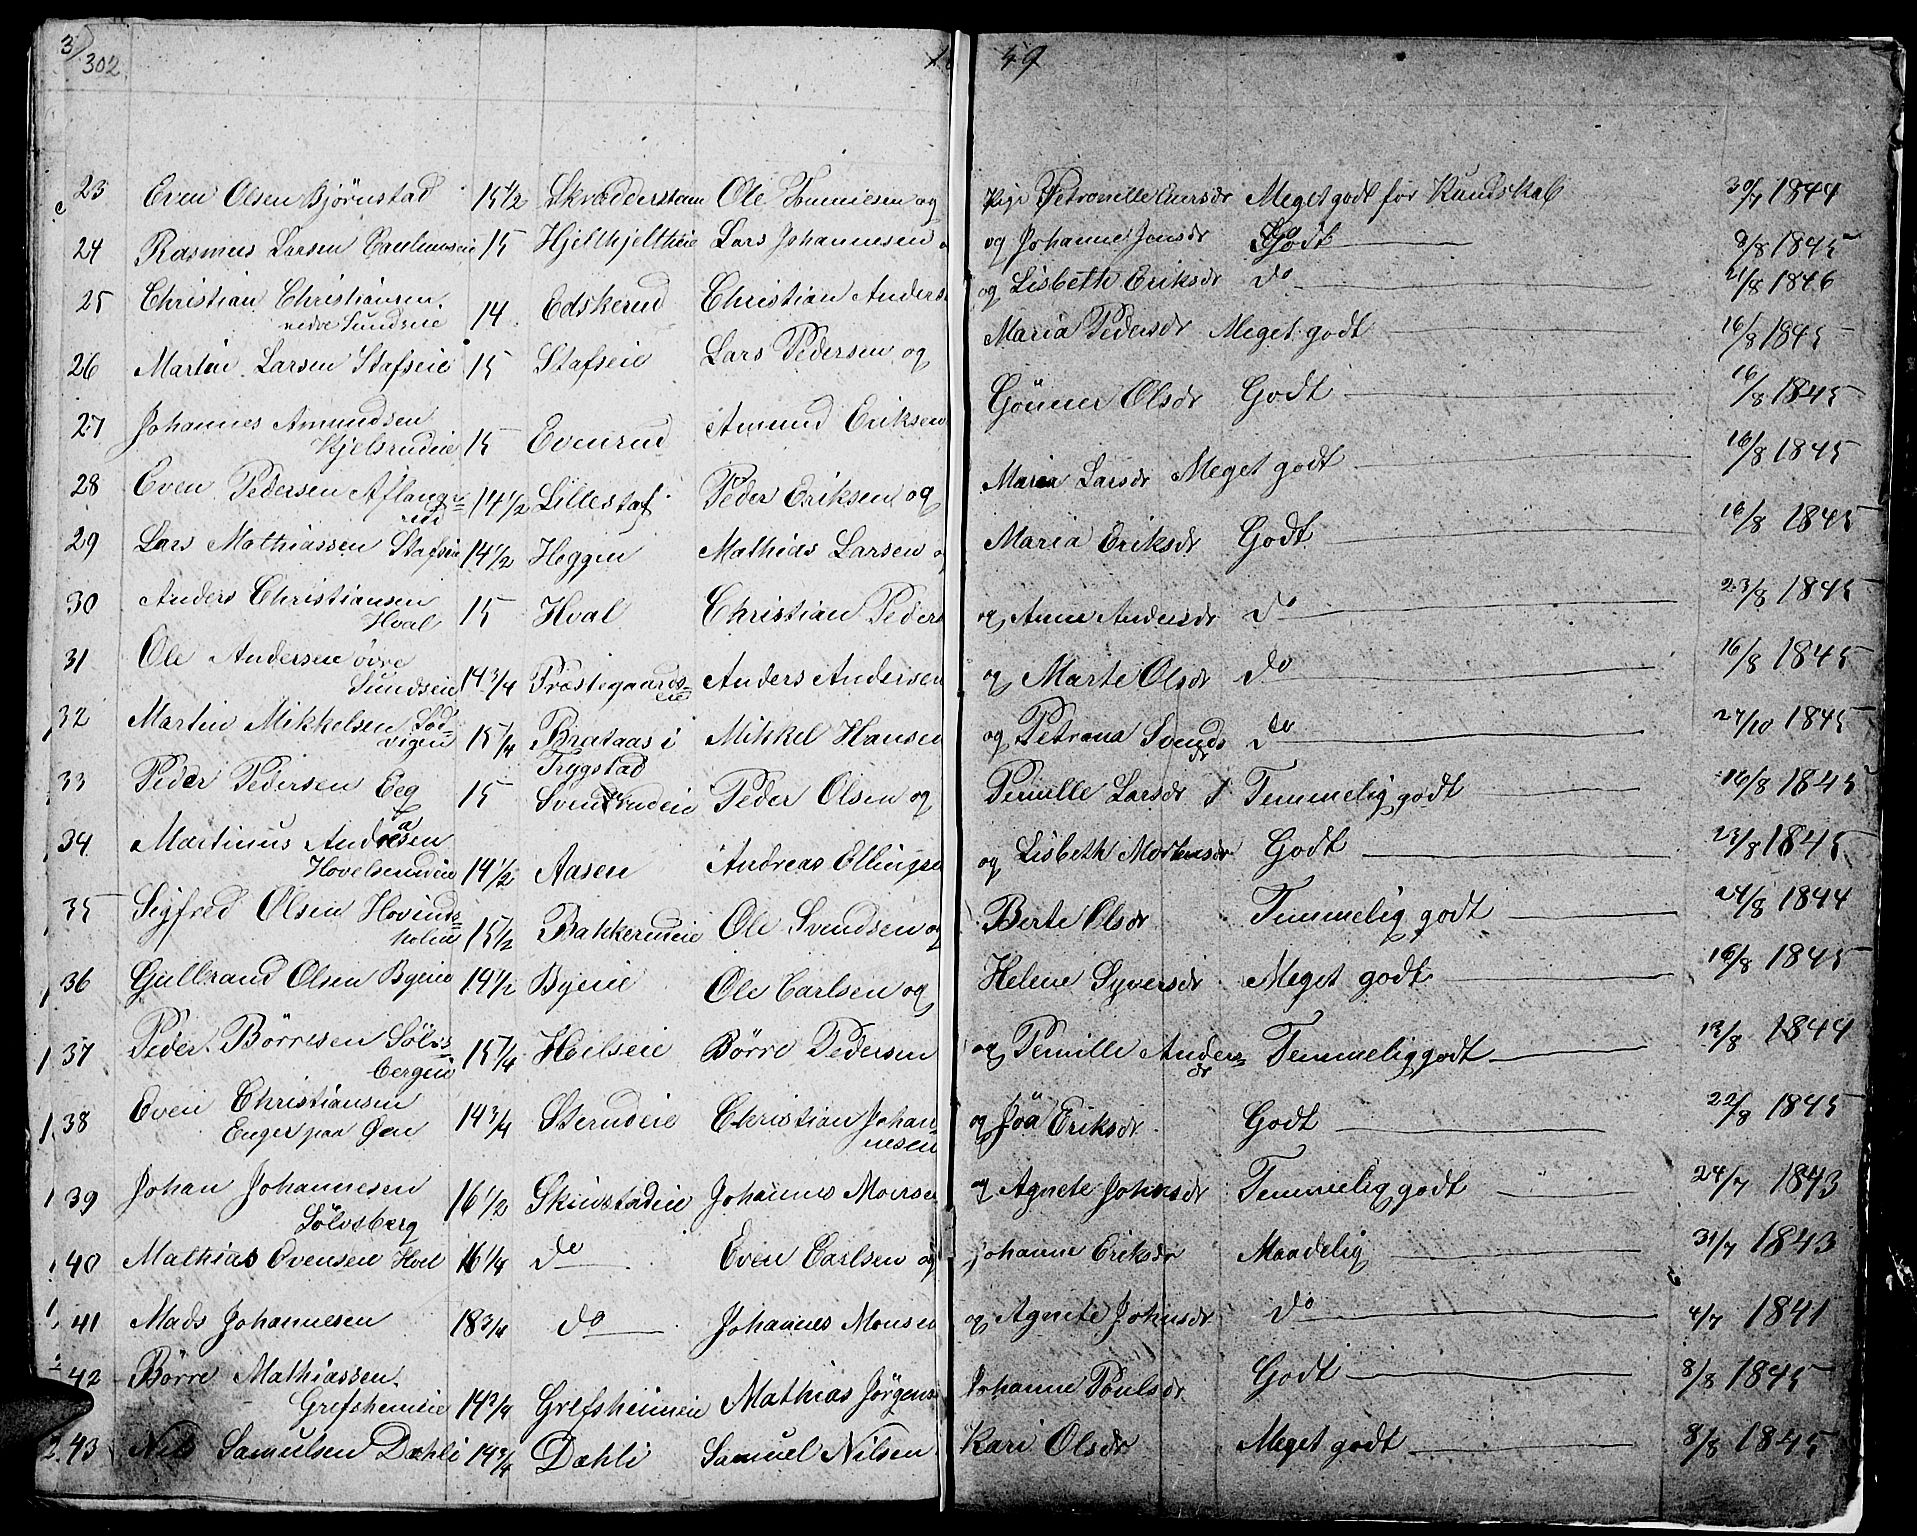 302
49
23 Even Olsen Bjørnstad 15 1/2 Skrædderstuen Ole og Petronille Meget godt før Kundskab 30/7 1844
24 Rasmus Larsen 15 Hjelthjelteie Lars Johannesen og Johanne Jensdr Godt 9/8 1845
25 Christian Christiansen 14 Edskerud Christian Anders og Lisbeth Eriksdr do 21/8 1846
nedre Sundseie
26 Martin Larsen Stafseie 15 Stafseie Lars Pedersen og Maria Pedersdr Meget godt 16/8 1845
27 Johannes Amundsen 15 Evenrud Amund Eriksen Gönner Olsdr Godt 16/8 1845
Kjelsrudeie
28 Even Pedersen Aflang= 14 1/2 Lillestaf Peder Eriksen og Maria Larsdr Meget godt 16/8 1845
rud
29 Lars Mathiassen Stafseie 14 1/2 Heggen Mathias Larsen Maria Eriksdr Godt 16/8 1845
30 Anders Christiansen 15 Hval Christian Peders og Anne Andersdr do 23/8 1845
Hval
31 Ole Andersen övre 14 3/4 Præstegaards= Anders Andersen og Marte Olsdr do 16/8 1845
Sundseie eie
32 Martin Mikkelsen Sød= 15 1/4 Brataas i Mikkel Hansen og Petrana Svends do 27/10 1845
vigen Trygstad dr
33 Peder Pedersen Eeg 15 Svendsrudeie Peder Olsen og Pernille Larsdr Temmelig godt 16/8 1845
34 Martinus Andreasen 14 1/2 Aasen Andreas Ellingsen og Lisbeth Mortensdr Godt 23/8 1845
Hovelsrudeie
35 Sigfred Olsen Hovinds= 15 1/2 Bakkerudeie Ole Svendsen og Berte Olsdr Temmelig godt 24/8 1844
holm
36 Gulbrand Olsen Byeie 14 1/2 Byeie Ole Carlsen og Helene Syversdr Meget godt 16/8 1845
37 Peder Börresen Sölvs= 15 1/4 Hoilseie Börre Pedersen og Pernille Anders= Temmelig godt 13/8 1844
bergeie dr
38 Even Christiansen 14 3/4 Sterudeie Christian Johan= og Jöa Eriksdr Godt 22/8 1845
Enger paa Øen nesen
39 Johan Johannesen 16 1/2 Skinstadeie Johannes og Agnete Johnsdr Temmelig godt 24/7 1843
Sölvsberg
40 Mathias Evensen Hvel 16 1/4 do Even Carlsen og Johanne Eriksdr Maadelig 31/7 1843
41 Mads Johannesen 18 3/4 do Johannes Monsen og Agnete Johnsdr do 4/7 1841
42 Börre Mathiassen 14 3/4 Grefsheimeie Mathias Jørgens Johanne Poulsdr Godt 8/8 1845
Grefsheimeie
43 Nils Samuelsen Dæhli 14 3/4 Dæhli Samuel Nilsen Kari Olsdr Meget godt 8/8 1845